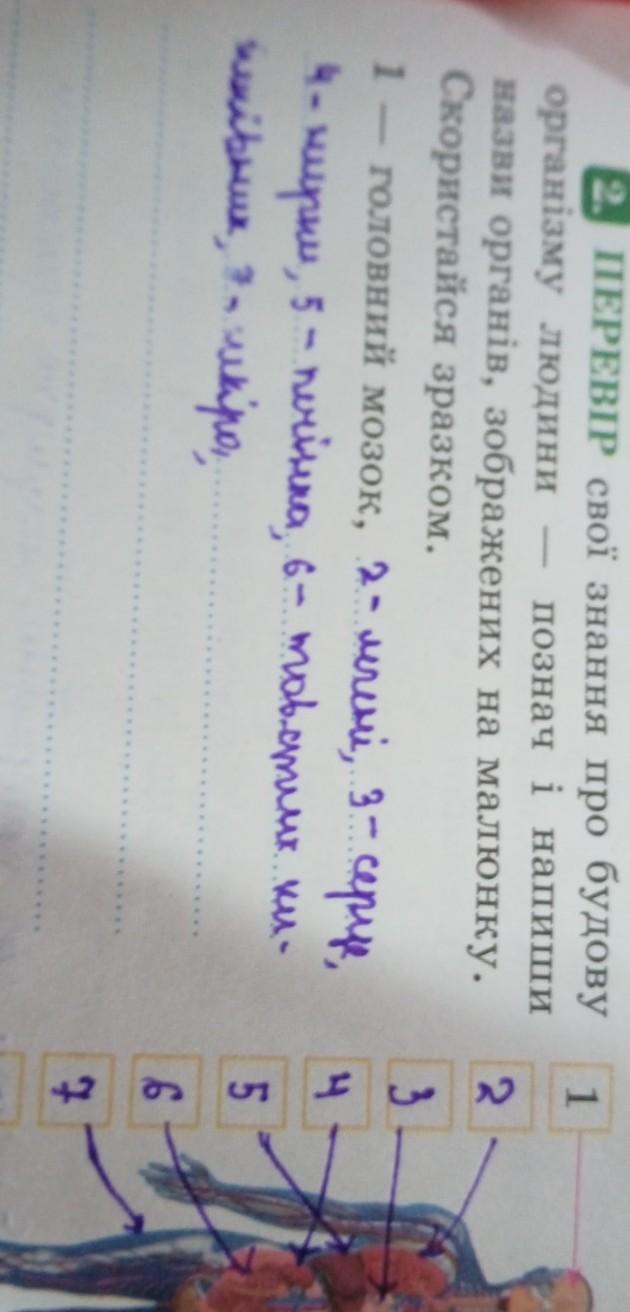 2. ПЕРЕВІР свої знання про будову
організму людини — познач і напиши
назви органів, зображених на малюнку.
Скористайся зразком.
1 — головний мозок, 2 - легені, 3 - серце,
4 - нирки, 5 - печінка, 6 - товстий ки-
шківник, 7 - шкіра,
1
2
3
4
5
6
7